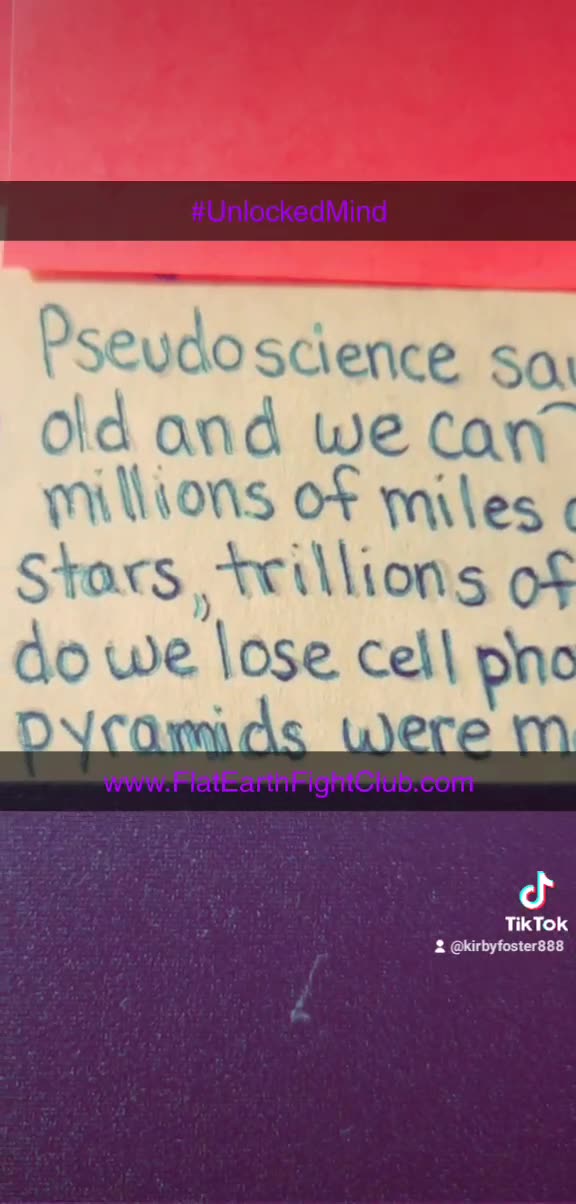 #UnlockedMind
Pseudoscience
old and we can
millions of miles
stars,, trillions of
do we lose cell
pyramids were
www.FlatEarthFightClub.com
TikTok
@kirbyfoster888